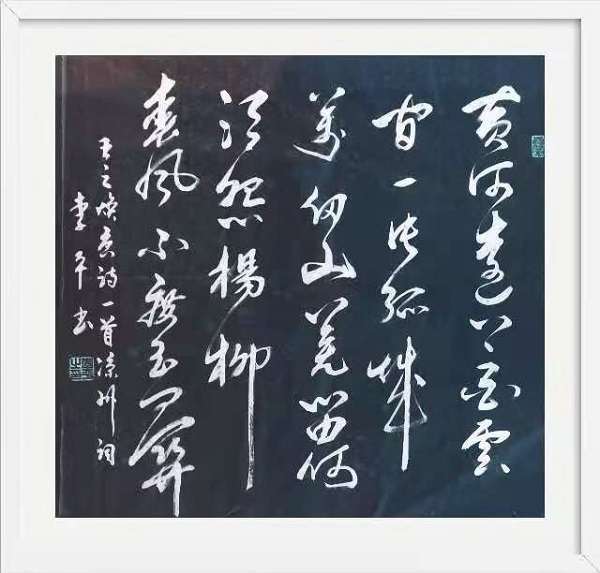 黄河遠上白雲
间一片孤城
萬仞山羌笛何
须怨楊柳
春风不度玉门關
王之焕唐诗一首凉州词
李平书